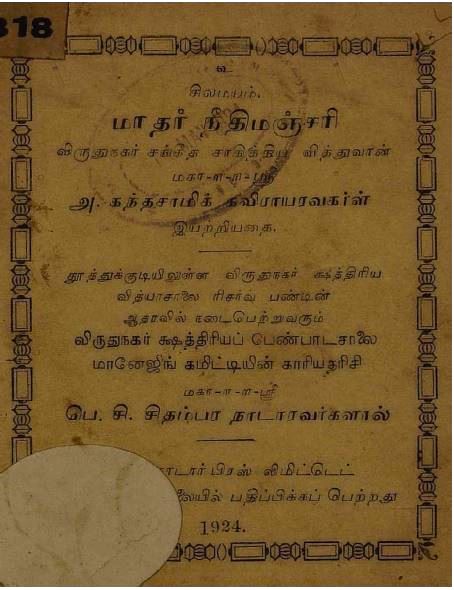 318
உ
சிவமயம்.
மாதர் நீதிமஞ்சரி
விருதுநகர் சங்கீத சாகித்திய வித்துவான்
மகா-௱-௱-ஸ்ரீ
அ. கந்தசாமிக் கவிராயரவர்கள்
இயற்றியதை,
தூத்துக்குடியிலுள்ள விருதுநகர் க்ஷத்திரிய
வித்யாசாலை ரிசர்வ் பண்டின்
ஆதரவில் நடைபெற்றுவரும்
விருதுநகர் க்ஷத்திரியப் பெண்பாடசாலை
மானேஜிங் கமிட்டியின் காரியதரிசி
மகா-௱-௱-ஸ்ரீ
பெ. சி. சிதம்பர நாடாரவர்களால்
பிரஸ் லிமிட்டெட்
பதிப்பிக்கப் பெற்றது
1924.